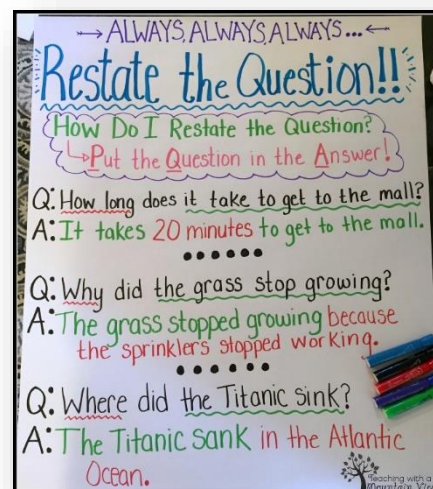 → ALWAYS, ALWAYS, ALWAYS... ←
Restate the Question!!
How Do I Restate the Question?
↳ Put the Question in the Answer!
Q: How long does it take to get to the mall?
A: It takes 20 minutes to get to the mall.
Q: Why did the grass stop growing?
A: The grass stopped growing because
the sprinklers stopped working.
Q: Where did the Titanic sink?
A: The Titanic sank in the Atlantic
Ocean.
Teaching with a
Mountain View